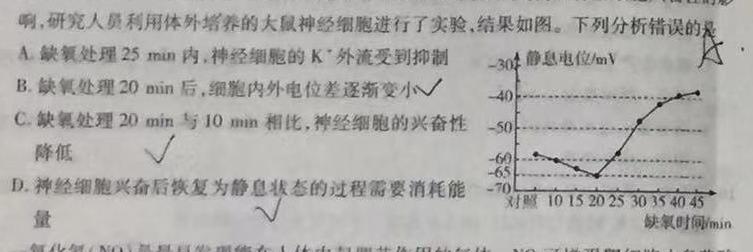 响,研究人员利用体外培养的大鼠神经细胞进行了实验,结果如图。下列分析错误的是
A
A. 缺氧处理25 min 内,神经细胞的K⁺外流受到抑制
B. 缺氧处理20 min 后,细胞内外电位差逐渐变小
C. 缺氧处理20 min 与10 min 相比,神经细胞的兴奋性
降低
D. 神经细胞兴奋后恢复为静息状态的过程需要消耗能
量
静息电位/mV
-30
-40
-50
-60
-65
-70
对照 10 15 20 25 30 35 40 45
缺氧时间/min